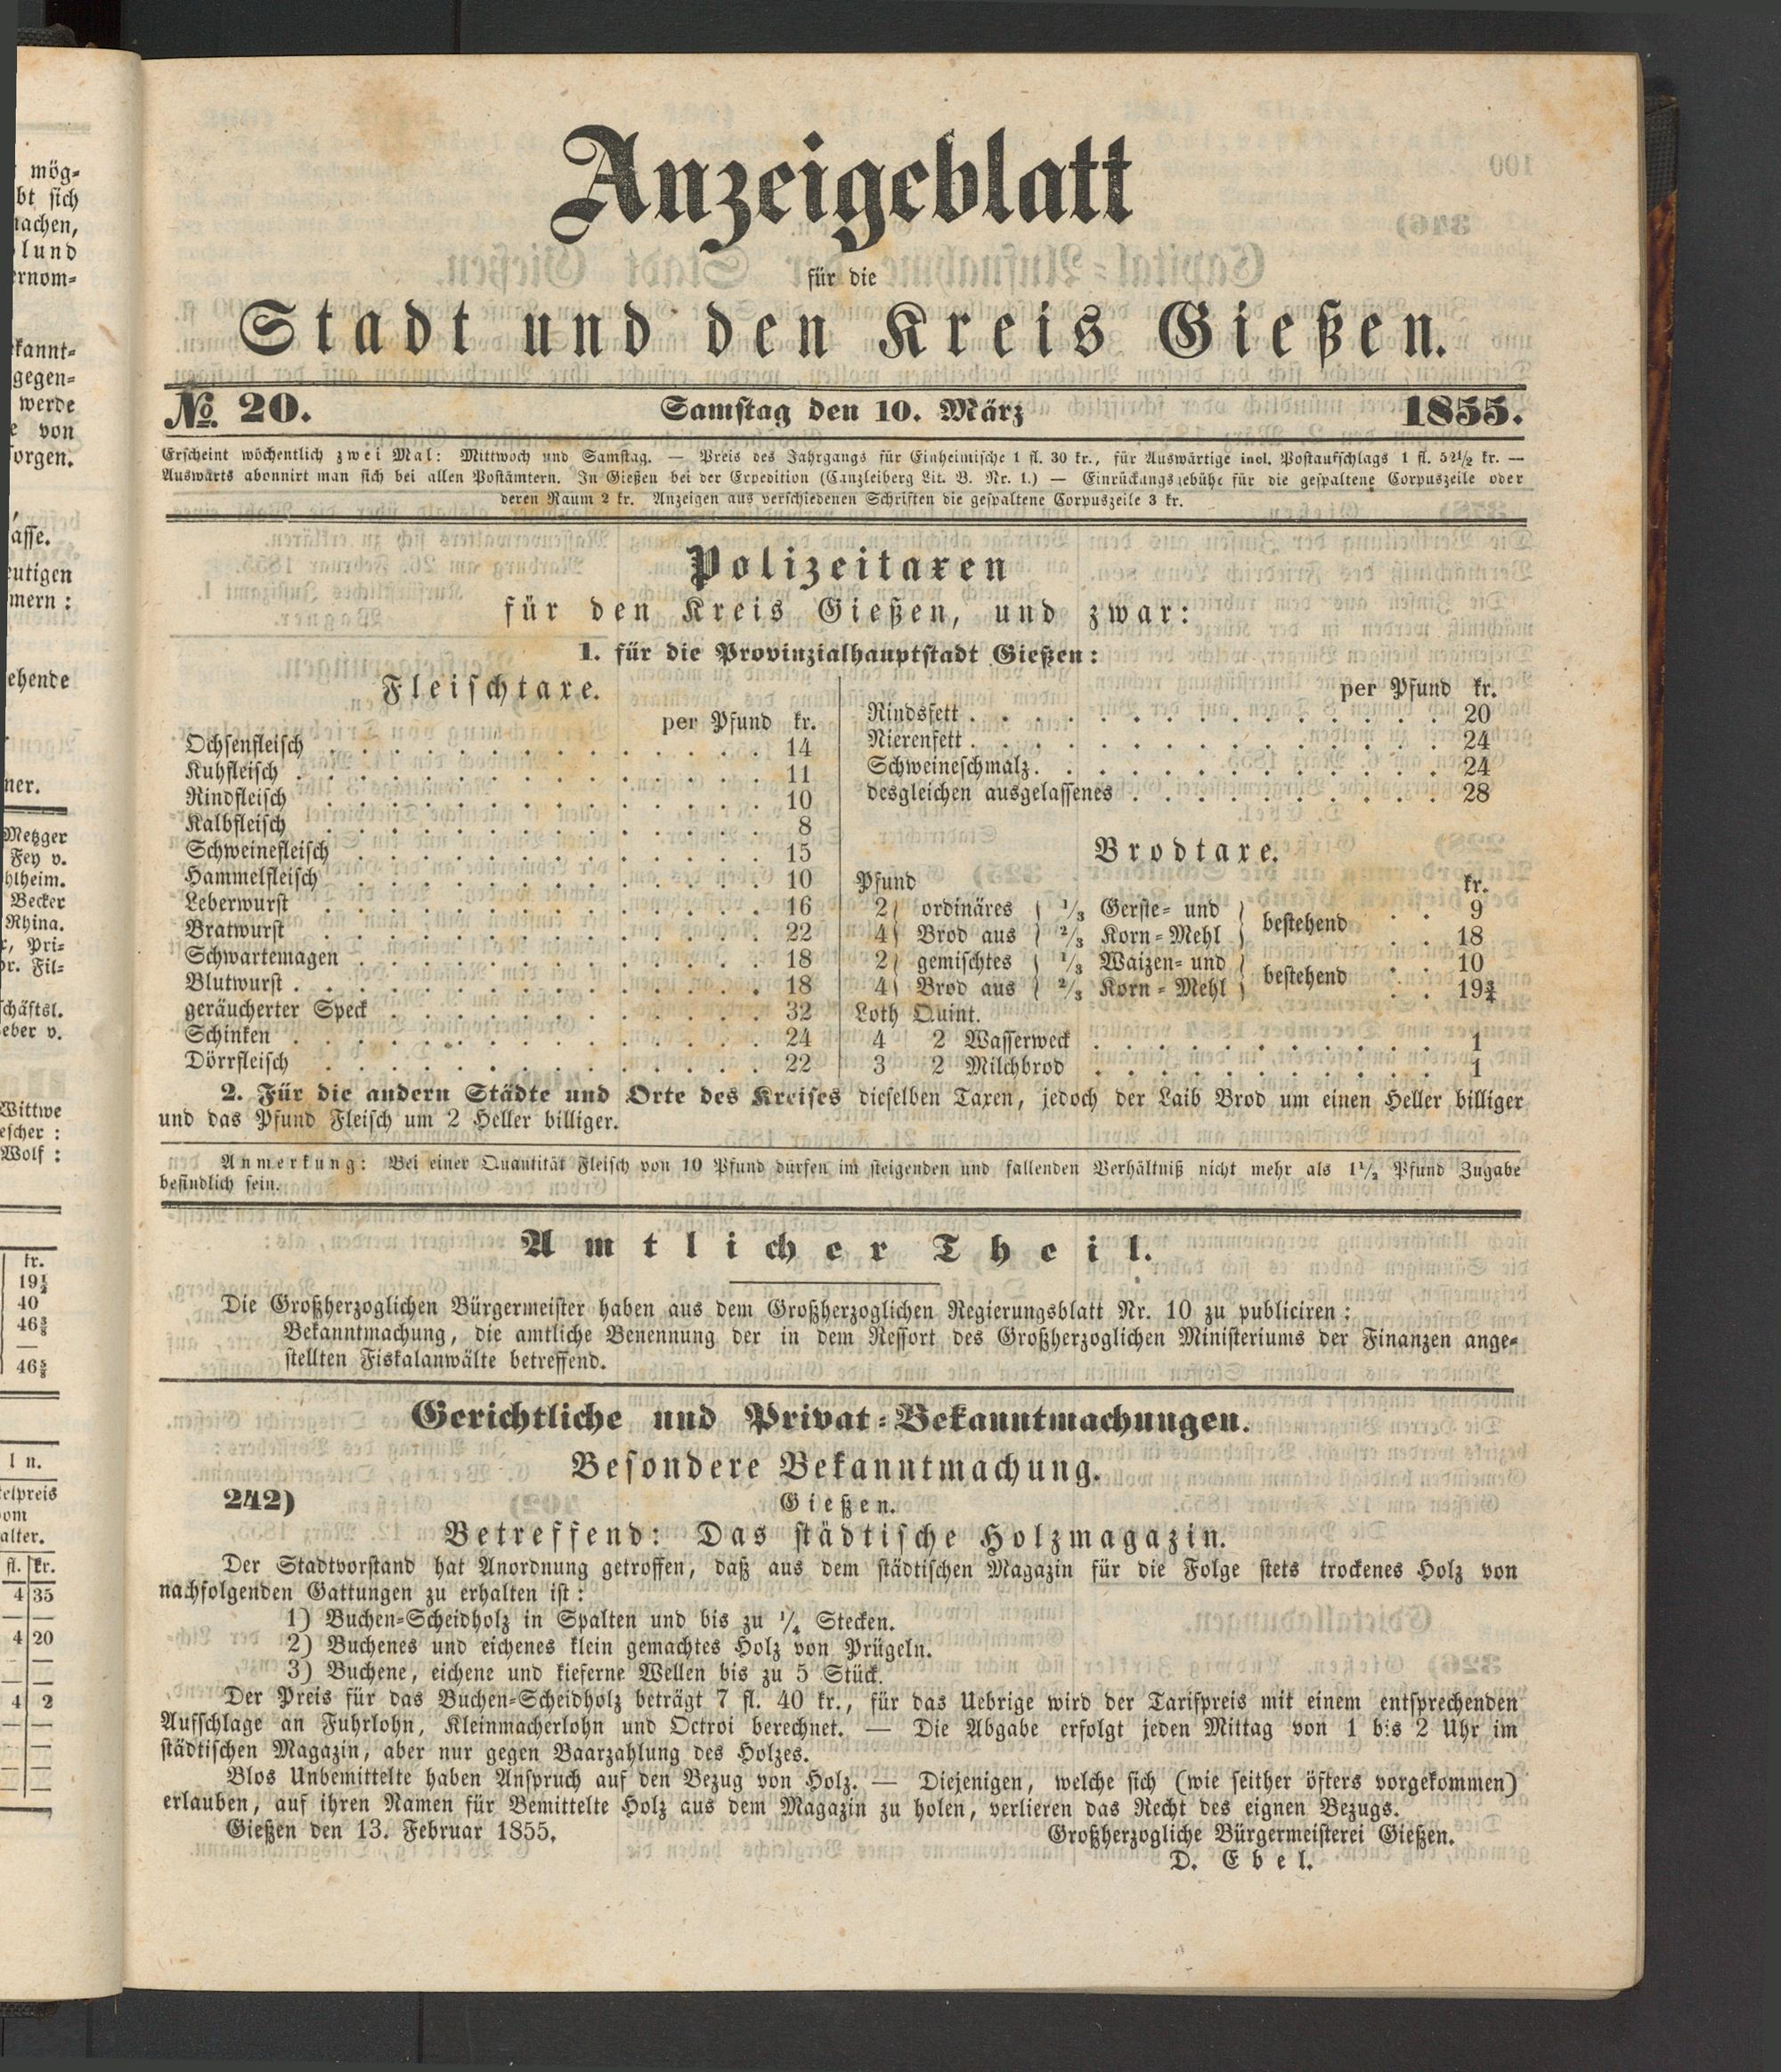 Anzeigeblatt
für die
Stadt und den Kreis Gießen.
No. 20. Samstag den 10. März 1855.
Erscheint wöchentlich zwei Mal: Mittwoch und Samstag. — Preis des Jahrgangs für Einheimische 1 fl. 30 kr., für Auswärtige incl. Postaufschlags 1 fl. 52½ kr. —
Auswärts abonnirt man sich bei allen Postämtern. In Gießen bei der Expedition (Canzleiberg Lit. B. Nr. 1.) — Einrückungsgebühr für die gespaltene Corpuszeile oder
deren Raum 2 kr. Anzeigen aus verschiedenen Schriften die gespaltene Corpuszeile 3 kr.
Polizeitaxen
für den Kreis Gießen, und zwar:
1. für die Provinzialhauptstadt Gießen:
Fleischtaxe.
per Pfund kr.
Ochsenfleisch . . . 14
Kuhfleisch . . . 11
Rindfleisch . . . 10
Kalbfleisch . . . 8
Schweinefleisch . . . 15
Hammelfleisch . . . 10
Leberwurst . . . 16
Bratwurst . . . 22
Schwartemagen . . . 18
Blutwurst . . . 18
geräucherter Speck . . . 32
Schinken . . . 24
Dörrfleisch . . . 22
per Pfund kr.
Rindsfett . . . 20
Nierenfett . . . 24
Schweineschmalz . . . 24
desgleichen ausgelassenes . . . 28
Brodtaxe.
Pfund kr.
2 ordinäres ⅓ Gerste- und bestehend . . 9
4 Brod aus ⅔ Korn-Mehl . . 18
2 gemischtes ⅓ Waizen- und bestehend . . 10
4 Brod aus ⅔ Korn-Mehl . . 19¾
Loth Quint.
4 2 Wasserweck . . . 1
3 2 Milchbrod . . . 1
2. Für die andern Städte und Orte des Kreises dieselben Taxen, jedoch der Laib Brod um einen Heller billiger
und das Pfund Fleisch um 2 Heller billiger.
Anmerkung: Bei einer Quantität Fleisch von 10 Pfund dürfen im steigenden und fallenden Verhältniß nicht mehr als 1½ Pfund Zugabe
befindlich sein.
Amtlicher Theil.
Die Großherzoglichen Bürgermeister haben aus dem Großherzoglichen Regierungsblatt Nr. 10 zu publiciren:
Bekanntmachung, die amtliche Benennung der in dem Ressort des Großherzoglichen Ministeriums der Finanzen ange-
stellten Fiskalanwälte betreffend.
Gerichtliche und Privat-Bekanntmachungen.
Besondere Bekanntmachung.
242) Gießen.
Betreffend: Das städtische Holzmagazin.
Der Stadtvorstand hat Anordnung getroffen, daß aus dem städtischen Magazin für die Folge stets trockenes Holz von
nachfolgenden Gattungen zu erhalten ist:
1) Buchen-Scheidholz in Spalten und bis zu ¼ Stecken.
2) Buchenes und eichenes klein gemachtes Holz von Prügeln.
3) Buchene, eichene und kieferne Wellen bis zu 5 Stück.
Der Preis für das Buchen-Scheidholz beträgt 7 fl. 40 kr., für das Uebrige wird der Tarifpreis mit einem entsprechenden
Aufschlage an Fuhrlohn, Kleinmacherlohn und Octroi berechnet. — Die Abgabe erfolgt jeden Mittag von 1 bis 2 Uhr im
städtischen Magazin, aber nur gegen Baarzahlung des Holzes.
Blos Unbemittelte haben Anspruch auf den Bezug von Holz. — Diejenigen, welche sich (wie seither öfters vorgekommen)
erlauben, auf ihren Namen für Bemittelte Holz aus dem Magazin zu holen, verlieren das Recht des eignen Bezugs.
Gießen den 13. Februar 1855. Großherzogliche Bürgermeisterei Gießen.
D. Ebel.